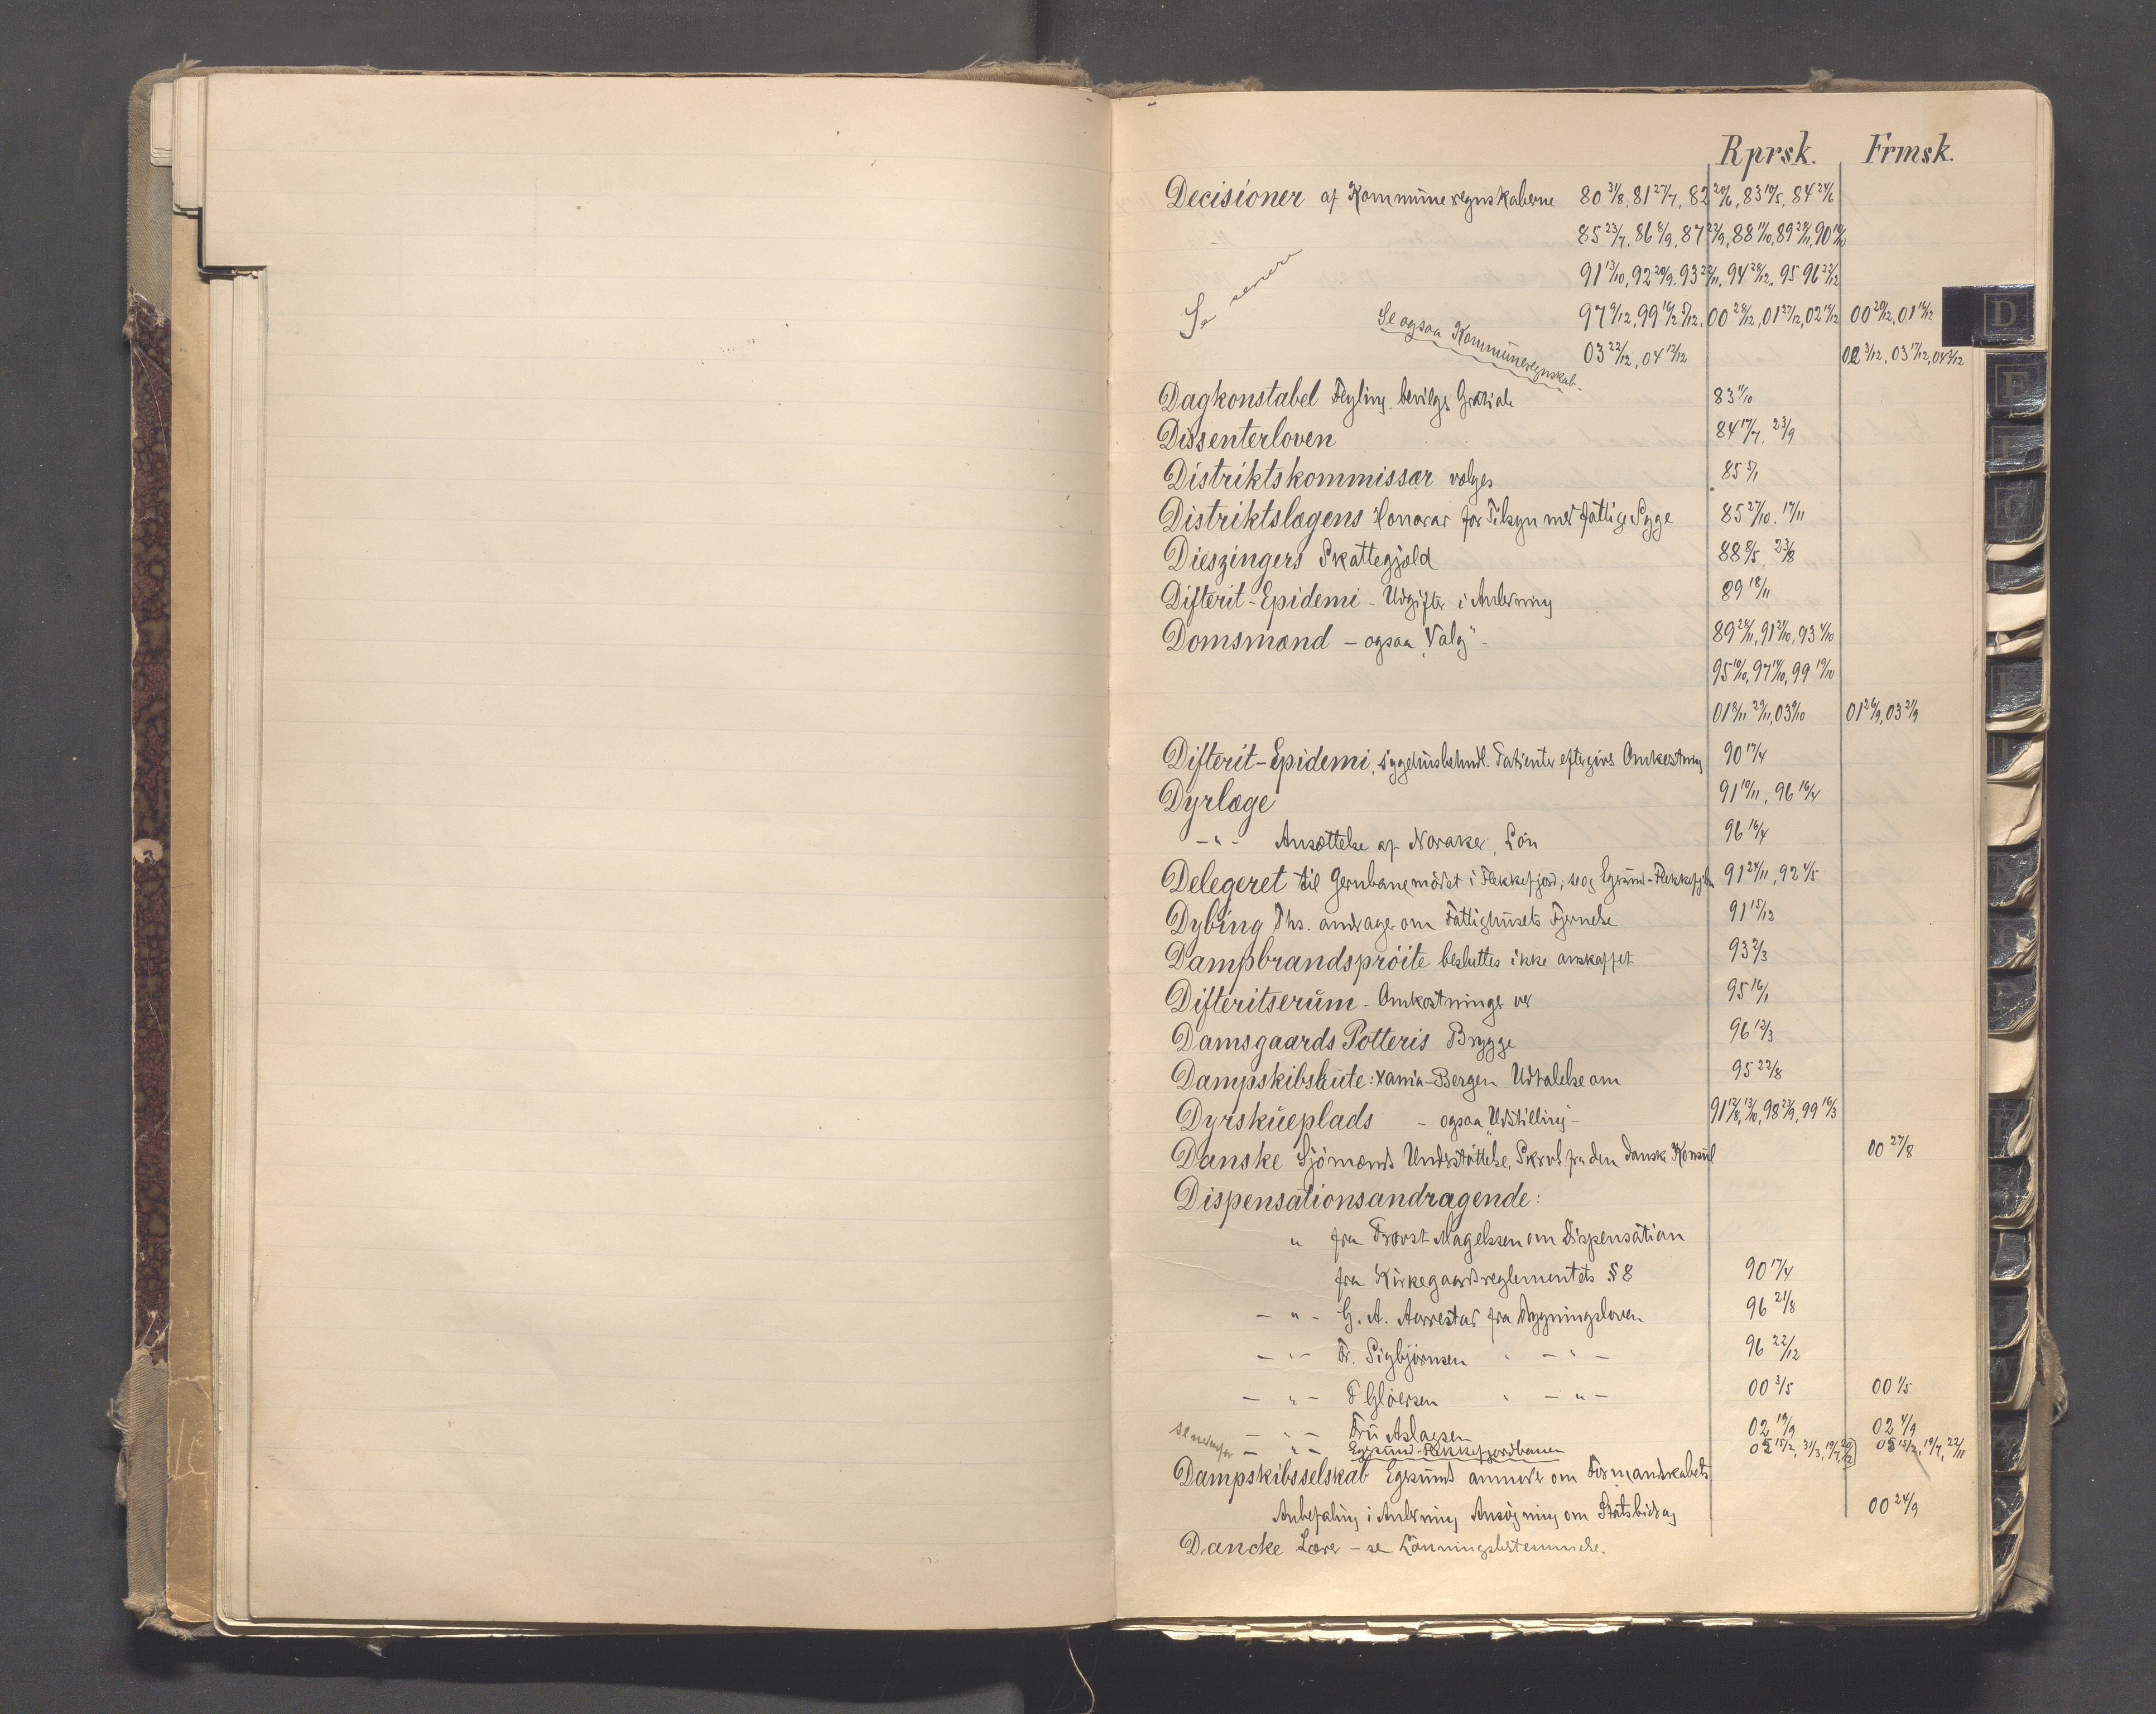 Rprsk. Frmsk.
Decisioner af Kommuneregnskaberne 80 31/8, 81 27/7, 82 20/6, 83 10/5, 84 24/6
85 23/7, 86 8/9, 87 22/9, 88 11/10, 89 28/11, 90 16/10
91 13/10, 92 20/9, 93 22/11, 94 28/12, 95 96 22/12
Se senere
97 9/12, 99 16/2 5/12, 00 28/12, 01 27/12, 02 19/12 00 20/12, 01 16/12
Se ogsaa Kommuneregnskab.
03 22/12, 04 12/12 02 3/12, 03 17/12, 04 2/12
Dagkonstabel Feyling bevilges Gratiale 83 11/10
Dissenterloven 84 17/7, 23/9
Distriktskommissær vælges 85 5/1
Distriktslægens Honorar for Tilsyn med fattige Syge 85 27/10, 17/11
Dieszingers Skattegjæld 88 8/5, 23/8
Difterit-Epidemi - Udgifter i Anledning 89 18/11
Domsmænd - ogsaa „Valg" - 89 28/11, 91 21/10, 93 4/10
95 10/10, 97 14/10, 99 19/10
01 8/11 29/11, 03 9/10 01 26/9, 03 21/9
Difterit-Epidemi, sygehusbehandl. Patienter eftergives Omkostning 90 17/4
Dyrlæge 91 10/11, 96 16/4
-"- Ansættelse af Noraker, Løn 96 16/4
Delegeret til Jernbanemødet i Flekkefjord; se og Egersund-Flekkefjbn 91 24/11, 92 4/5
Dybing Ths. andrager om Fattighusets Fjernelse 91 15/12
Dampbrandsprøite besluttes ikke anskaffet 93 2/3
Difteritserum - Omkostninger ved 95 16/1
Damsgaards Potteris Brygge 96 12/3
Dampskibsrute: Xania-Bergen Udtalelse om 95 22/8
Dyrskueplads - ogsaa „Udstilling - 91 12/8, 13/10, 98 23/9, 99 16/3
Danske Sjømænds Understøttelse, Skrivl. fra den danske Konsul 00 27/8
Dispensationsandragende:
" fra Provst Magelssen om Dispensation
fra Kirkegaardsreglementets § 8 90 17/4
- " - G. A. Aarrestad fra Bygningsloven 96 21/8
- " - Fr. Sigbjørnsen " - " - 96 22/12
- " - F Gløersen " - " - 00 3/5 00 1/5
- " - Fru Aslagsen 02 19/9 02 4/9
- " - Egersund-Flekkefjordbanen 05 15/2, 31/3, 19/7, 20/12 05 15/2, 19/7, 22/11
Dampskibsselskab Egersund anmoder om Formandskabets
Anbefaling i Anledning Ansøgning om Statsbidrag 00 24/9
Dancke Lærer - se Lønningsbestemmelse.
D
E
F
G
K
L
N
P
R
W